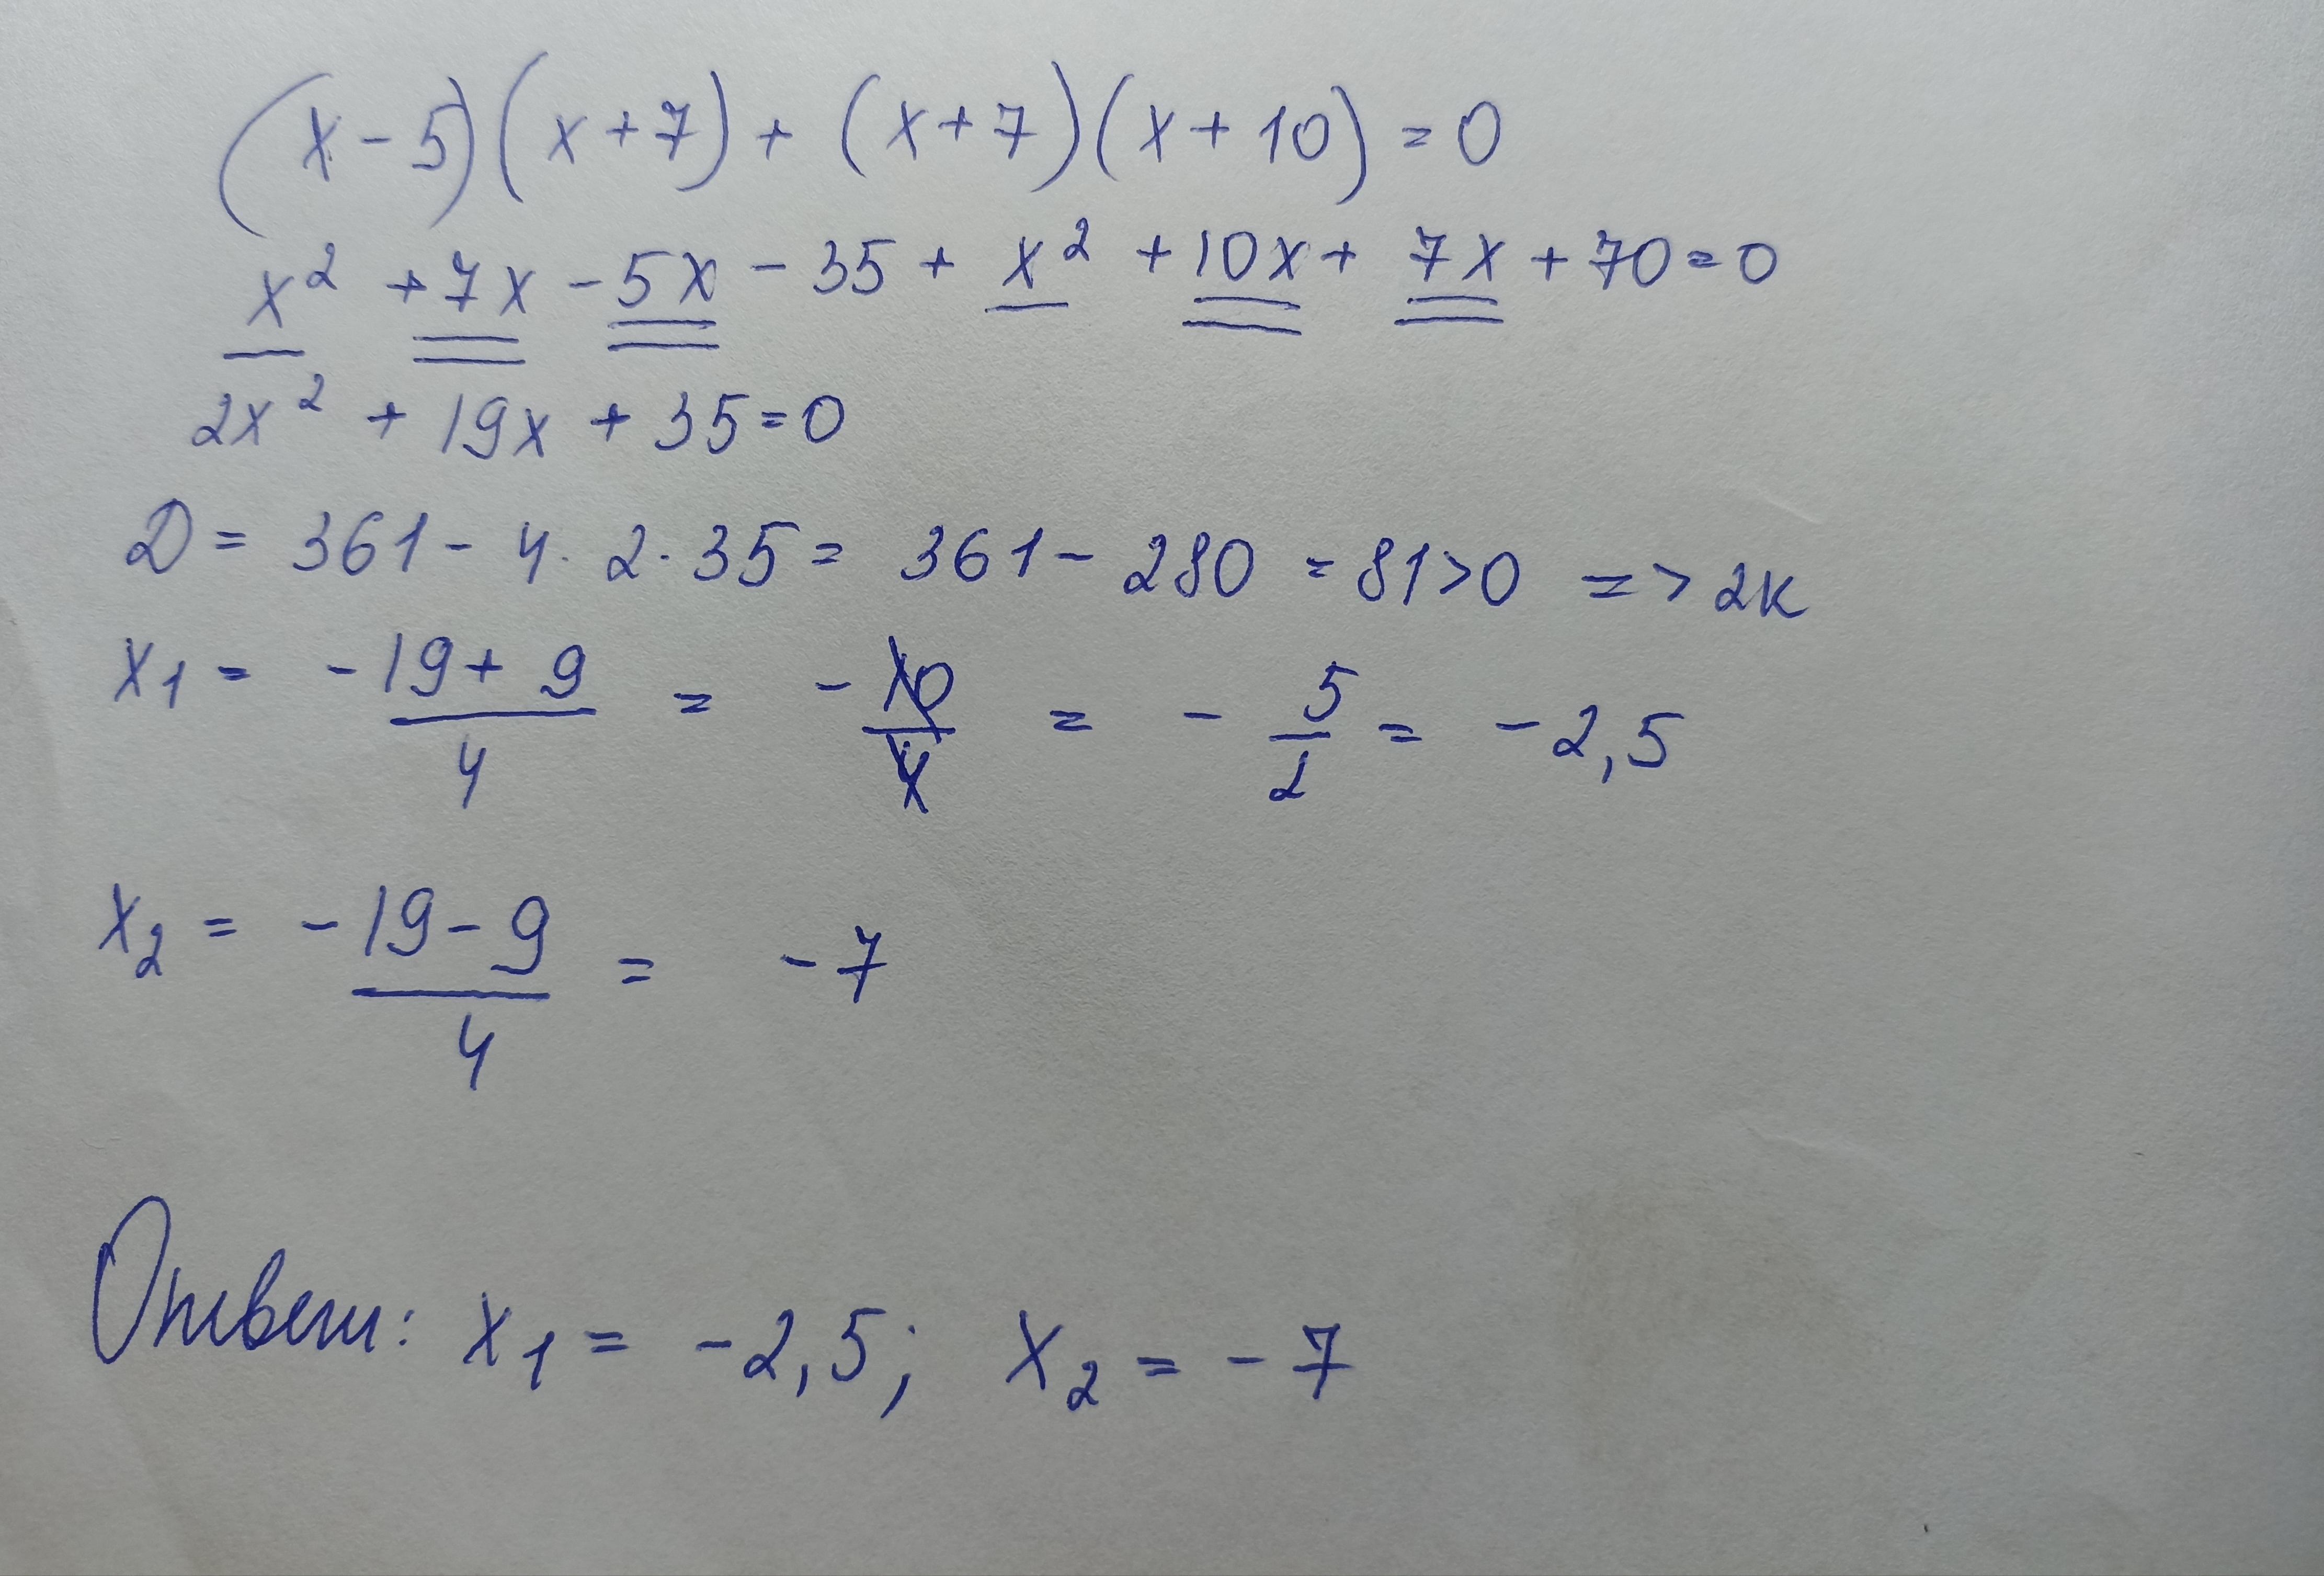 (x-5)(x+7)+(x+7)(x+10)=0
x²+7x-5x-35+x²+10x+7x+70=0
2x²+19x+35=0
D=361-4·2·35=361-280=81>0 => 2к
x₁=(-19+9)/4=-10/4=-5/2=-2,5
x₂=(-19-9)/4=-7
Ответ: x₁=-2,5; x₂=-7